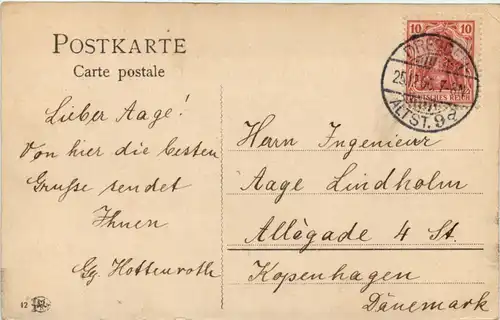 POSTKARTE
Carte postale
Lieber Aage!
Von hier die besten
Grüsse sendet
Ihnen
Gg. Hottenroth
12
10 10
DEUTSCHES REICH
DRESDEN
ALTST. 9
Herrn Ingenieur
Aage Lindholm
Allègade 4 St.
Kopenhagen
Dänemark